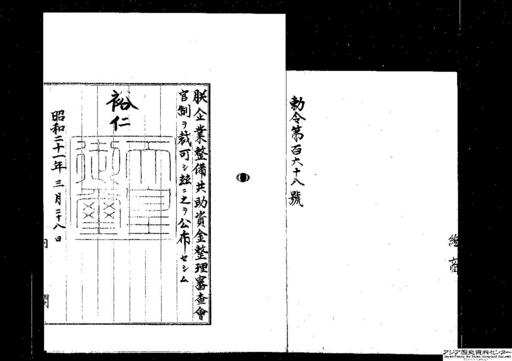 勅令第百六十八號
朕企業整備共助資金整理審査會
官制ヲ裁可シ茲ニ之ヲ公布セシム
裕仁
天皇御璽
昭和二十一年三月二十八日
内閣
アジア歴史資料センター